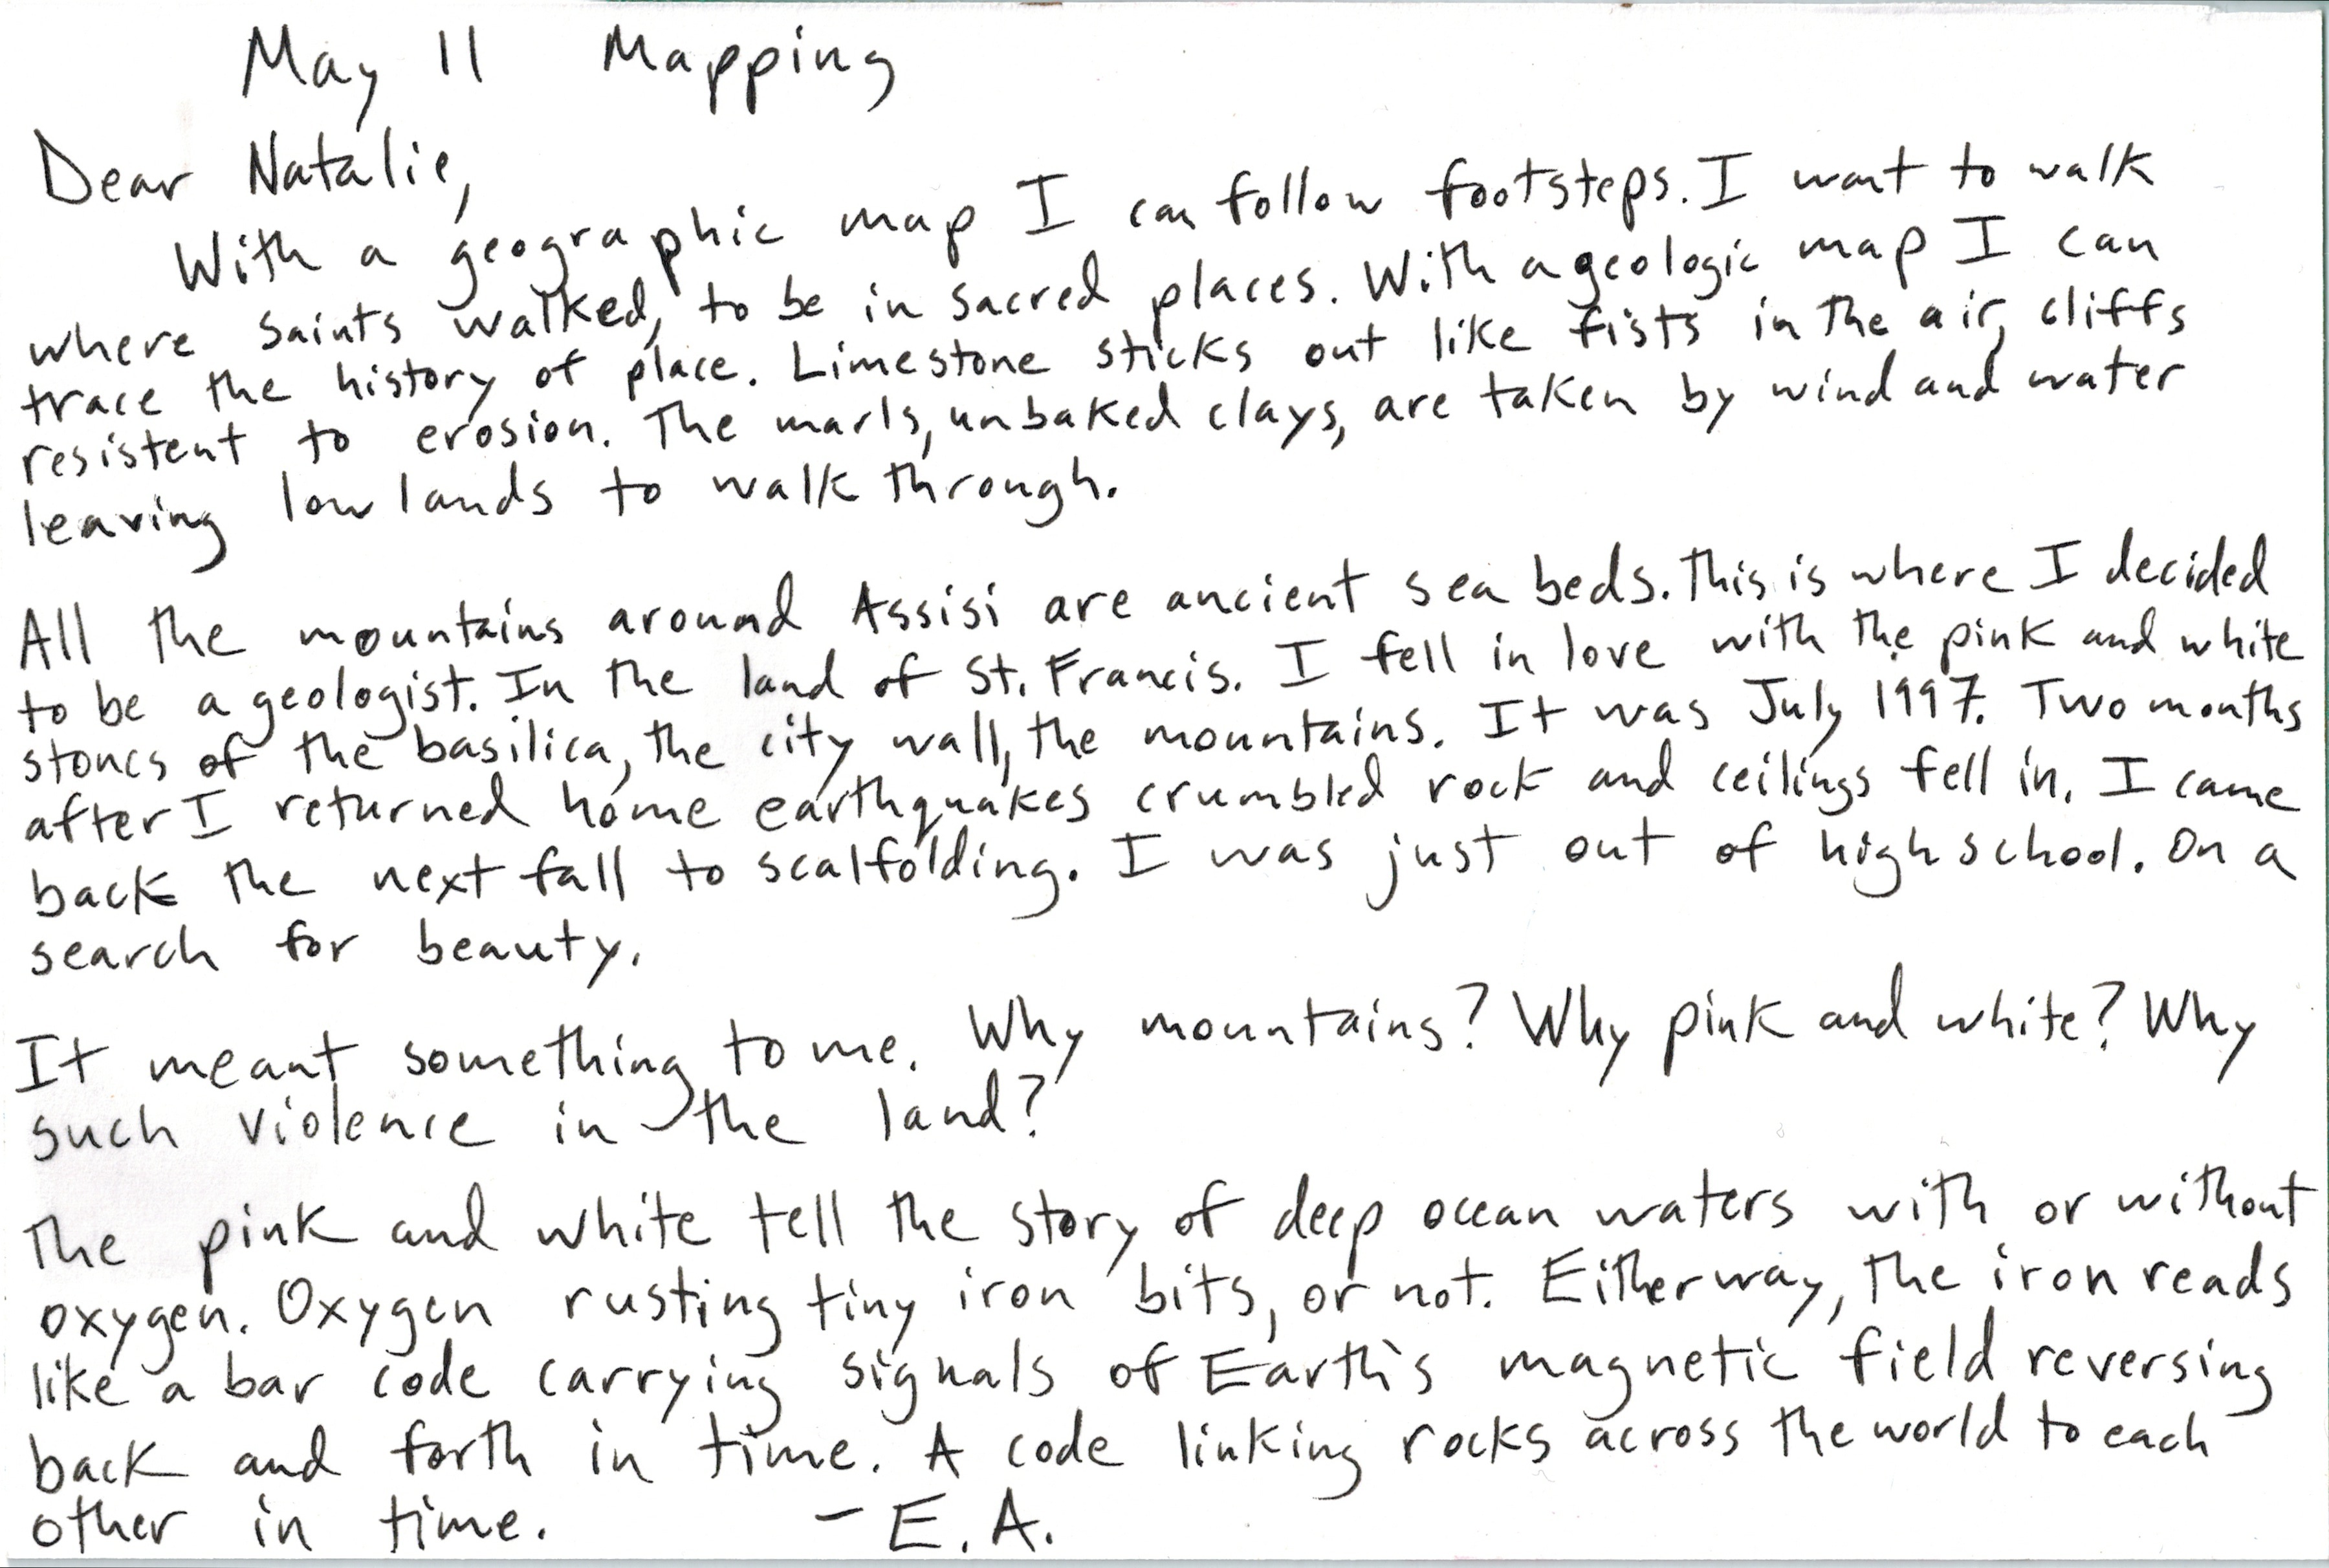 May 11 Mapping
Dear Natalie,
With a geographic map I can follow footsteps. I want to walk
where saints walked, to be in sacred places. With a geologic map I can
trace the history of place. Limestone sticks out like fists in the air, cliffs
resistent to erosion. The marls, unbaked clays, are taken by wind and water
leaving low lands to walk through.
All the mountains around Assisi are ancient sea beds. This is where I decided
to be a geologist. In the land of St. Francis. I fell in love with the pink and white
stones of the basilica, the city wall, the mountains. It was July 1997. Two months
after I returned home earthquakes crumbled rock and ceilings fell in. I came
back the next fall to scalfolding. I was just out of high school. On a
search for beauty.
It meant something to me. Why mountains? Why pink and white? Why
such violence in the land?
The pink and white tell the story of deep ocean waters with or without
oxygen. Oxygen rusting tiny iron bits, or not. Either way, the iron reads
like a bar code carrying signals of Earth's magnetic field reversing
back and forth in time. A code linking rocks across the world to each
other in time. - E.A.